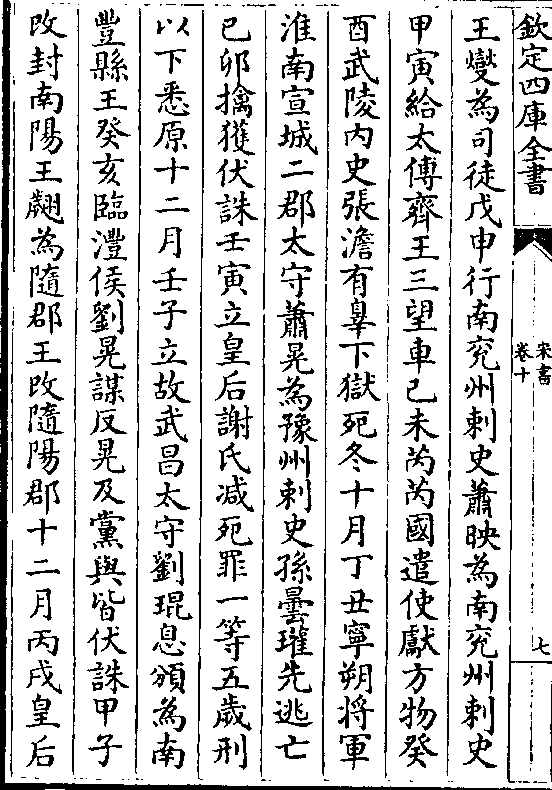 欽定四庫全書
宋書
卷十
七
王燮為司徒戊申行南兖州刺史蕭映為南兖州刺史
甲寅給太傅齊王三望車己未芮芮國遣使獻方物癸
酉武陵内史張澹有辠下獄死冬十月丁丑寧朔将軍
淮南宣城二郡太守蕭晃為豫州刺史孫曇瓘先逃亡
己卯擒獲伏誅壬寅立皇后謝氏减死罪一等五歲刑
以下悉原十二月壬子立故武昌太守劉琨息頒為南
豐縣王癸亥臨澧侯劉晃謀反晃及黨與皆伏誅甲子
改封南陽王翽為隨郡王改隨陽郡十二月丙戌皇后